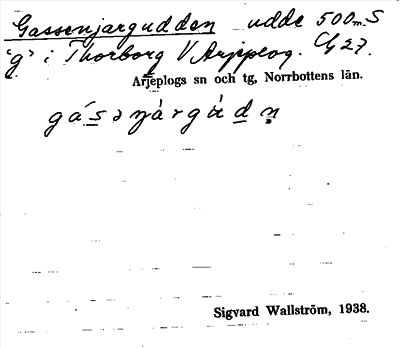 Gassenjargudden udde 500 m S
'g' i Thorborg V Arjeplog. Cg 27.
Arjeplogs sn och tg, Norrbottens län.
gásəŋàrgùdn̥
Sigvard Wallström, 1938.